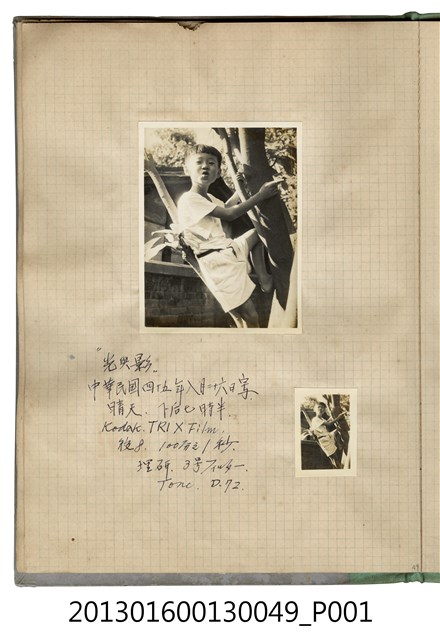 "光與影"
中華民國四十五年八月十六日寫
晴天. 下后七時半.
Kodak. TRI X Film.
後8. 100分之1秒.
理研. 3号フィルター.
Tone. D.72.
201301600130049_P001